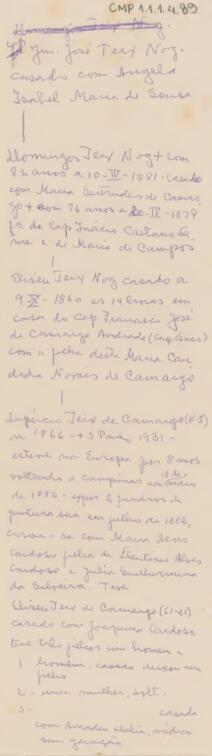 CMP 1.1.1.4.89
Domingos Teix Nog.
José Teix Nog.
casado com Angela
Isabel Maria de Sousa
Domingos Teix Nog + com
82 anos a 10-IV-1881 - casado
com Maria Gertrudes de Camar
go + com 76 anos a 20-IV-1879
fa de Cap Inácio Caetano Le
me e de Maria de Campos
Eliseu Teix Nog casado a
9-X-1860 as 14 horas em
casa do Cap Francisco José
de Camargo Andrade
com a filha deste Maria Can
dida Novais de Camargo
Lupércio Teix de Camargo
n 1866 - + S Paulo 1931 -
esteve na Europa por 8 anos
voltando a Campinas em
de 1882 - expos 2 quadros de
pintura sua em julho de 1882,
casou-se com Maria Alves
Cardoso filha de Eleuterio Alves
Cardoso e Julia Guilhermina
da Silveira. Teve
Eliseu Teix de Camargo
casado com Joaquina Cardoso
teve três filhos um homem e
1 homem, casado deixou um
filho
2 - uma mulher, solt.
3 - casada
com Amadeu, médico
sem geração